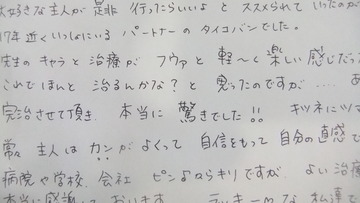 大好きな主人が是非行ったらいいよとススメられていったのが
17年近くいっしょにいるパートナーのタイコバンでした。
先生のキャラと治療がフワァと軽〜く楽しい感じだった
これでほんと治るんかな？と思ったのですが....あ
完治させて頂き、本当に驚きでした!! キツネにツ
常々主人はカンがよくって自信をもって自分の直感で
病院や学校、会社 ピンからキリですが、よい治療
本当に感謝しております。ラッキーな私達で